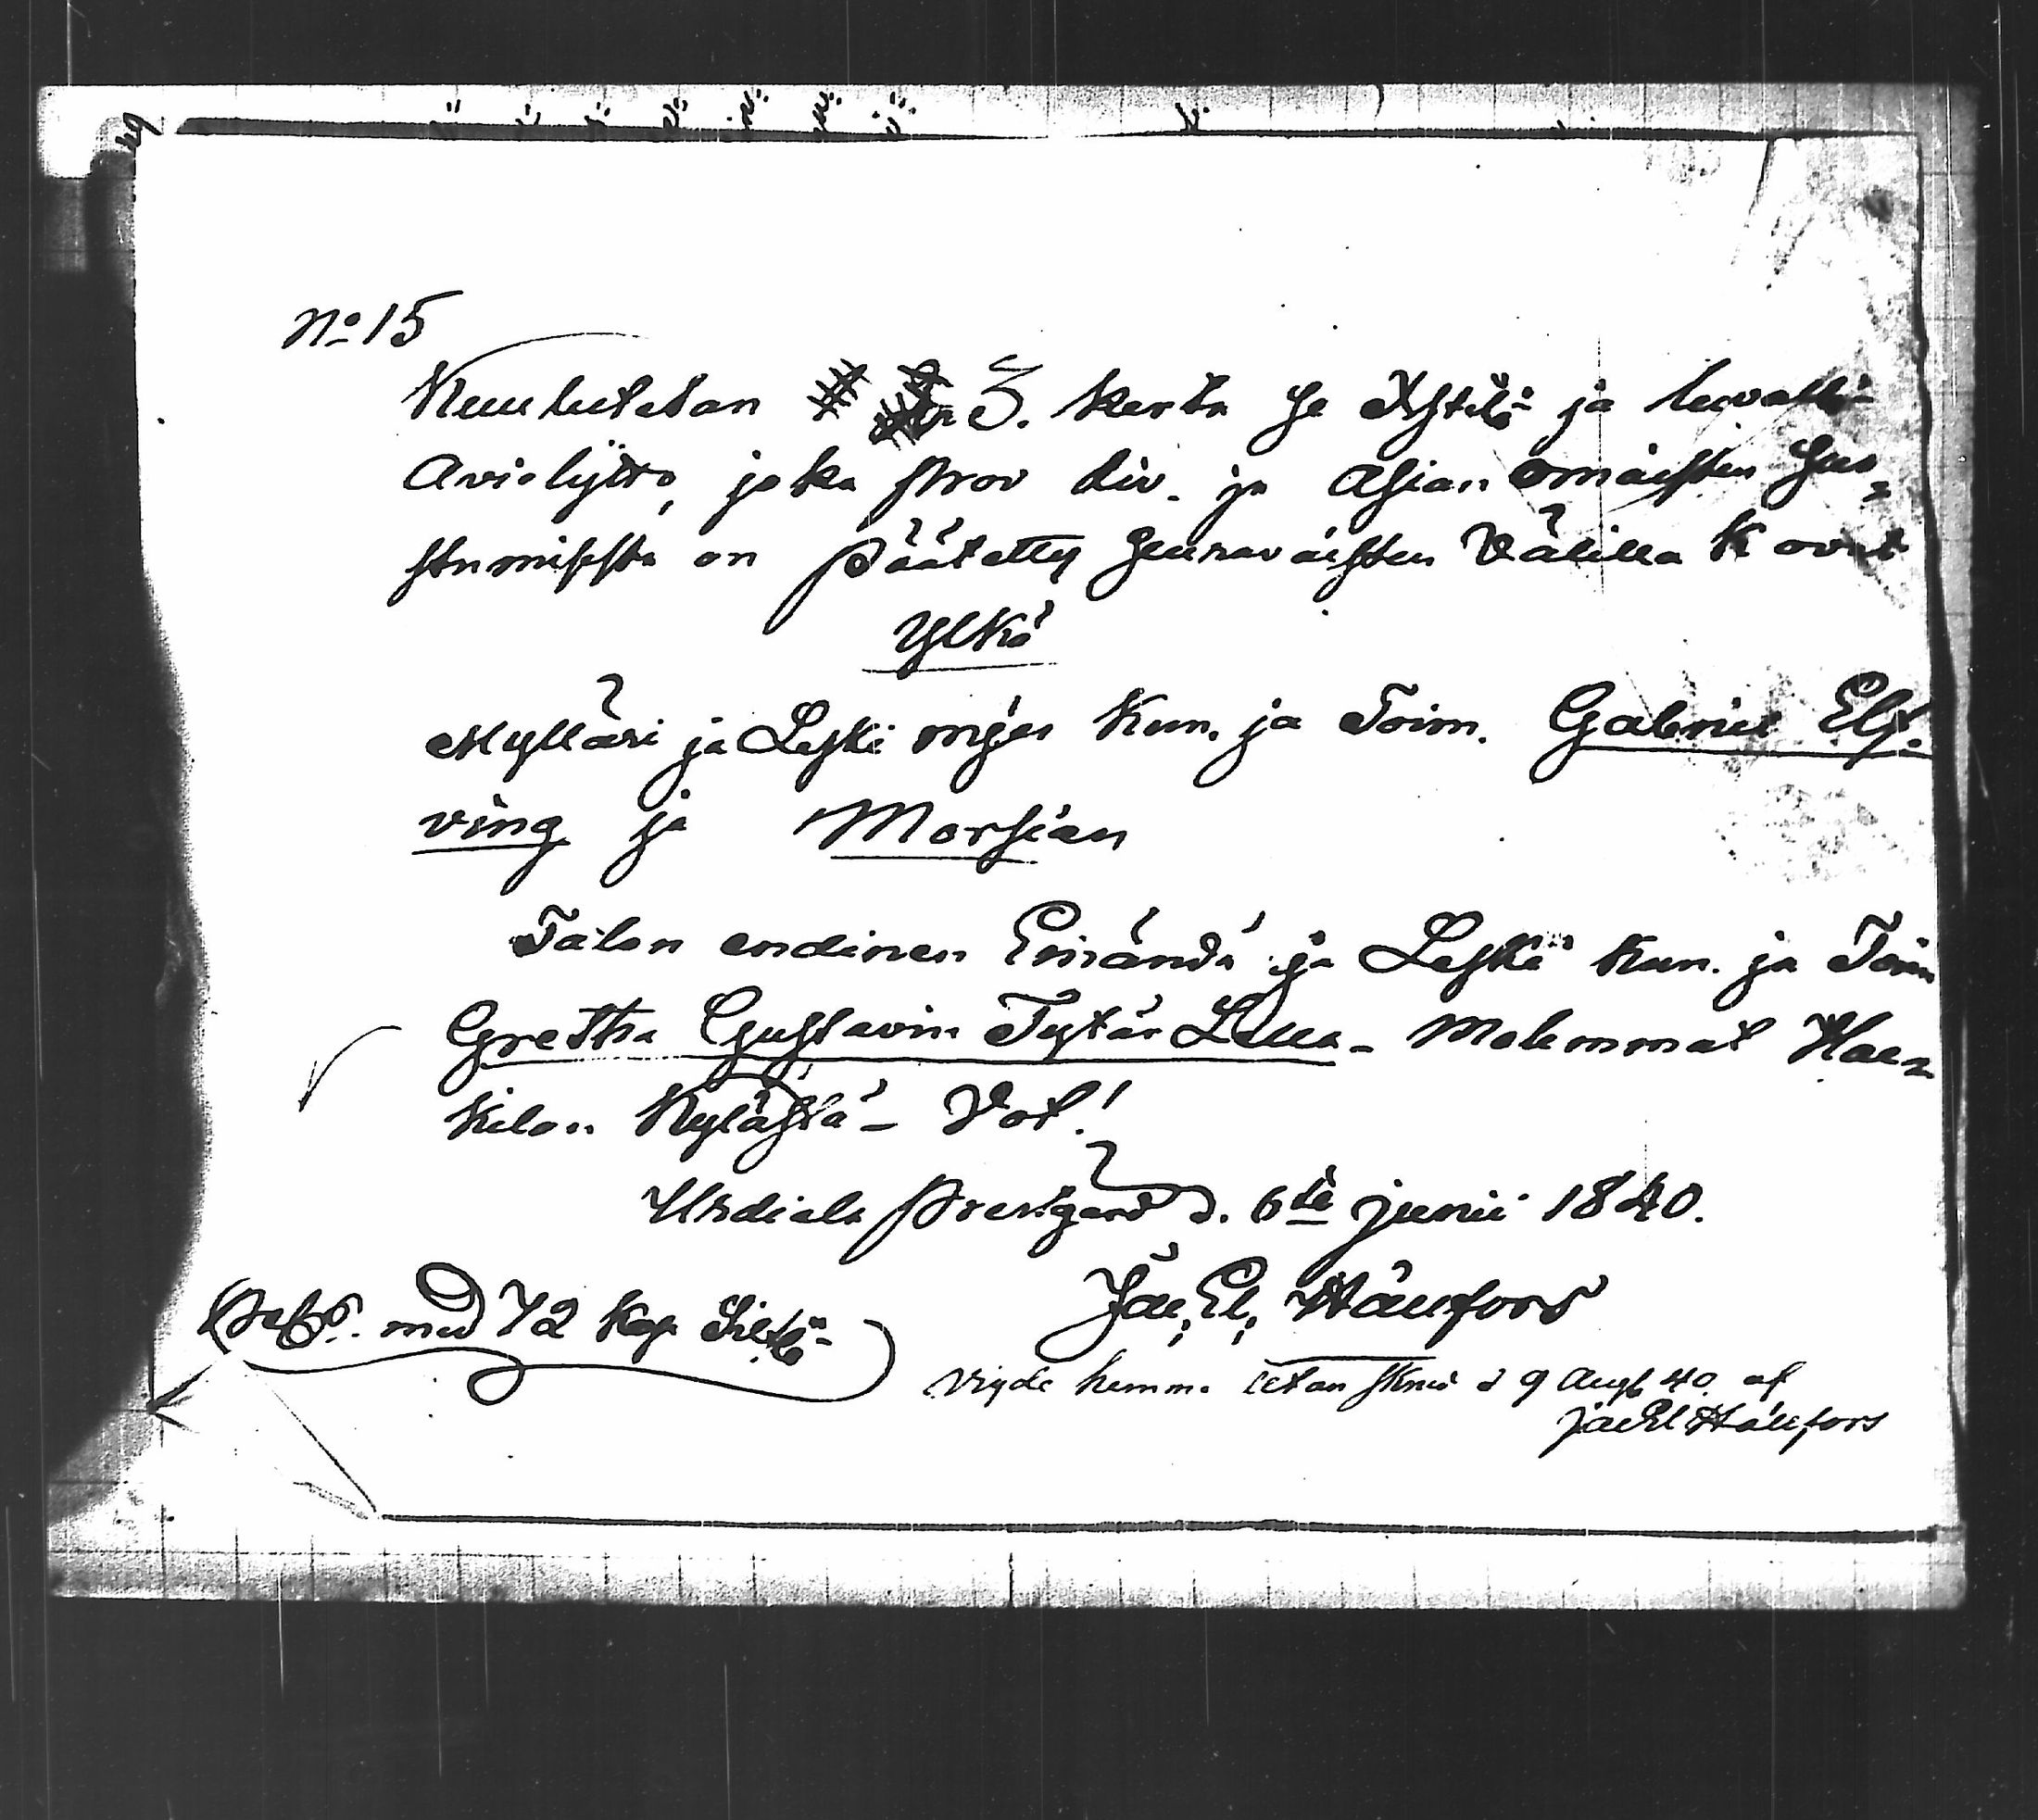 No 15
Kuulutetan 3. kerta se Xstil: ja luvalli-
Aviolijtto, joka prov div. ja Asian omaisten Suo=
stumisesta on päätetty Seuravaisten Välillä K ovat
Ylkä
Mylläri ja Leski mjes Kun. ja Toim. Gabriel Elf-
ving ja Morsian
Talon endinen Emändä ja Leski Kun. ja Toim
Gretha Gustavin Tytär Lilla - Molemmat Hae=
kilon Kylästä - Vot!
Urdiala Prestgård d. 6te junii 1840.
Jac. El. Hällfors
med 72 Kop Silfr
Vigde hemma utan d 9 Aug 40. af
Jac El Hällfors